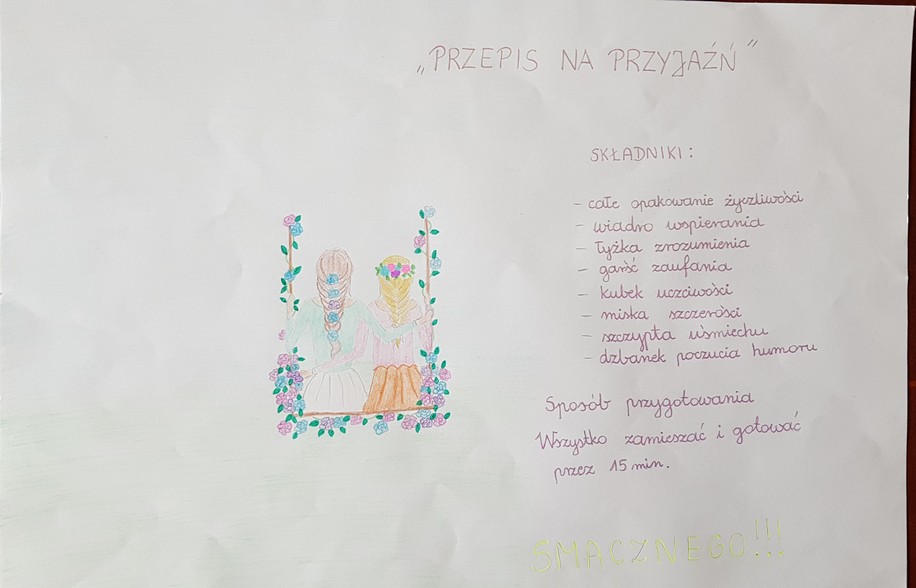 „PRZEPIS NA PRZYJAŹŃ”
SKŁADNIKI:
- całe opakowanie życzliwości
- wiadro wspierania
- łyżka zrozumienia
- garść zaufania
- kubek uczciwości
- miska szczerości
- szczypta uśmiechu
- dzbanek poczucia humoru
Sposób przygotowania
Wszystko zamieszać i gotować
przez 15 min.
SMACZNEGO!!!